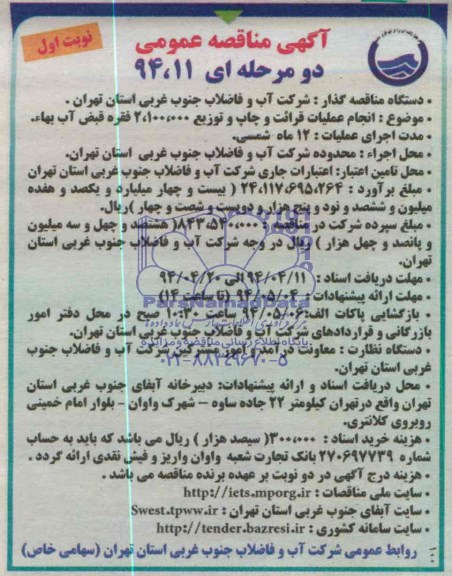 نوبت اول
آگهی مناقصه عمومی
دو مرحله ای ۹۴،۱۱
• دستگاه مناقصه گذار : شرکت آب و فاضلاب جنوب غربی استان تهران .
• موضوع : انجام عملیات قرائت و چاپ و توزیع ۲،۱۰۰،۰۰۰ فقره قبض آب بهاء.
• مدت اجرای عملیات : ۱۲ ماه شمسی.
• محل اجراء : محدوده شرکت آب و فاضلاب جنوب غربی استان تهران.
• محل تامین اعتبار: اعتبارات جاری شرکت آب و فاضلاب جنوب غربی استان تهران
• مبلغ برآورد : ۲۴،۱۱۷،۶۹۵،۲۶۴ ( بیست و چهار میلیارد و یکصد و هفده
میلیون و ششصد و نود و پنج هزار و دویست و شصت و چهار )ریال.
• مبلغ سپرده شرکت در مناقصه : ۸۴۳،۵۴۰،۰۰۰( هشتصد و چهل و سه میلیون
و پانصد و چهل هزار ) ریال در وجه شرکت آب و فاضلاب جنوب غربی استان
تهران.
• مهلت دریافت اسناد : ۹۴/۰۴/۱۱ الی ۹۴/۰۴/۲۰
• مهلت ارائه پیشنهادات : ۹۴/۰۵/۰۴ (تا ساعت ۱۴)
• بازگشایی پاکات الف: ۹۴/۰۵/۰۶ ساعت ۱۰:۳۰ صبح در محل دفتر امور
بازرگانی و قراردادهای شرکت آب و فاضلاب جنوب غربی استان تهران.
• دستگاه نظارت : معاونت درآمد و امور مشترکین شرکت آب و فاضلاب جنوب
غربی استان تهران.
• محل دریافت اسناد و ارائه پیشنهادات: دبیرخانه آبفای جنوب غربی استان
تهران واقع درتهران کیلومتر ۲۲ جاده ساوه – شهرک واوان – بلوار امام خمینی
روبروی کلانتری.
• هزینه خرید اسناد : ۳۰۰،۰۰۰( سیصد هزار ) ریال می باشد که باید به حساب
شماره ۲۷۰۶۹۷۷۳۹ بانک تجارت شعبه واوان واریز و فیش نقدی ارائه گردد .
• هزینه درج آگهی در دو نوبت بر عهده برنده مناقصه می باشد .
• سایت ملی مناقصات : http://iets.mporg.ir
• سایت آبفای جنوب غربی استان تهران : Swest.tpww.ir
• سایت سامانه کشوری : http://tender.bazresi.ir
روابط عمومی شرکت آب و فاضلاب جنوب غربی استان تهران (سهامی خاص)
ParsNamadData
پایگاه اطلاع رسانی مناقصه و مزایده
۰۲۱-۸۸۳۴۹۶۷۰-۵